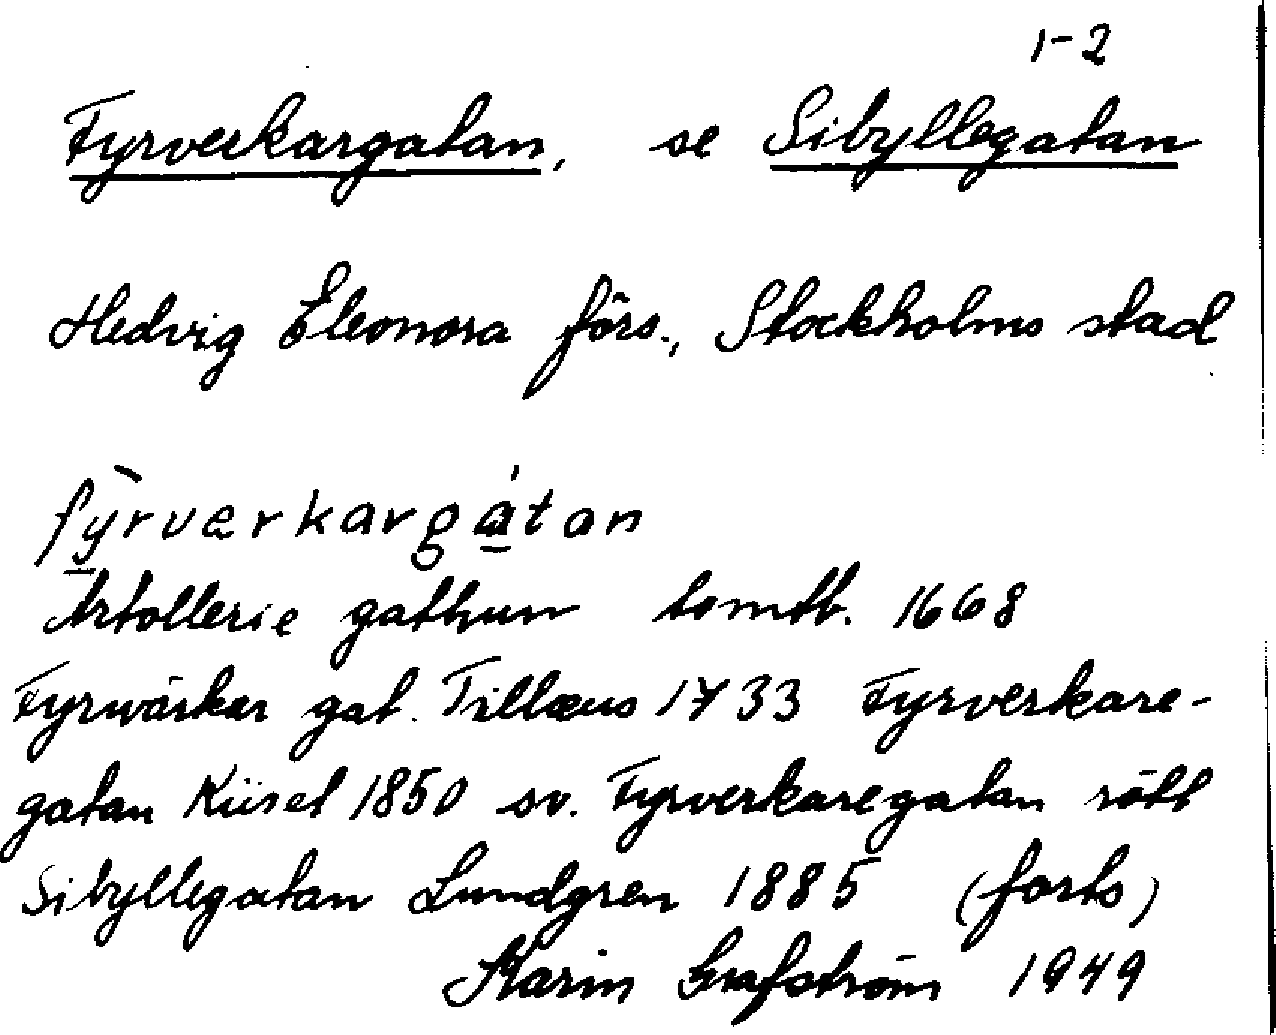 1-2
Fyrverkargatan, se Sibyllegatan
Hedvig Eleonora förs., Stockholms stad
fỳ̠rværkargá̠tan
Artollerie gathun tomtb. 1668
Fyrwärker gat. Tillæus 1733 Fyrverkare-
gatan Küsel 1850 sv. Fyrverkaregatan rött
Sibyllegatan Lundgren 1885 (forts)
Karin Grafström 1949